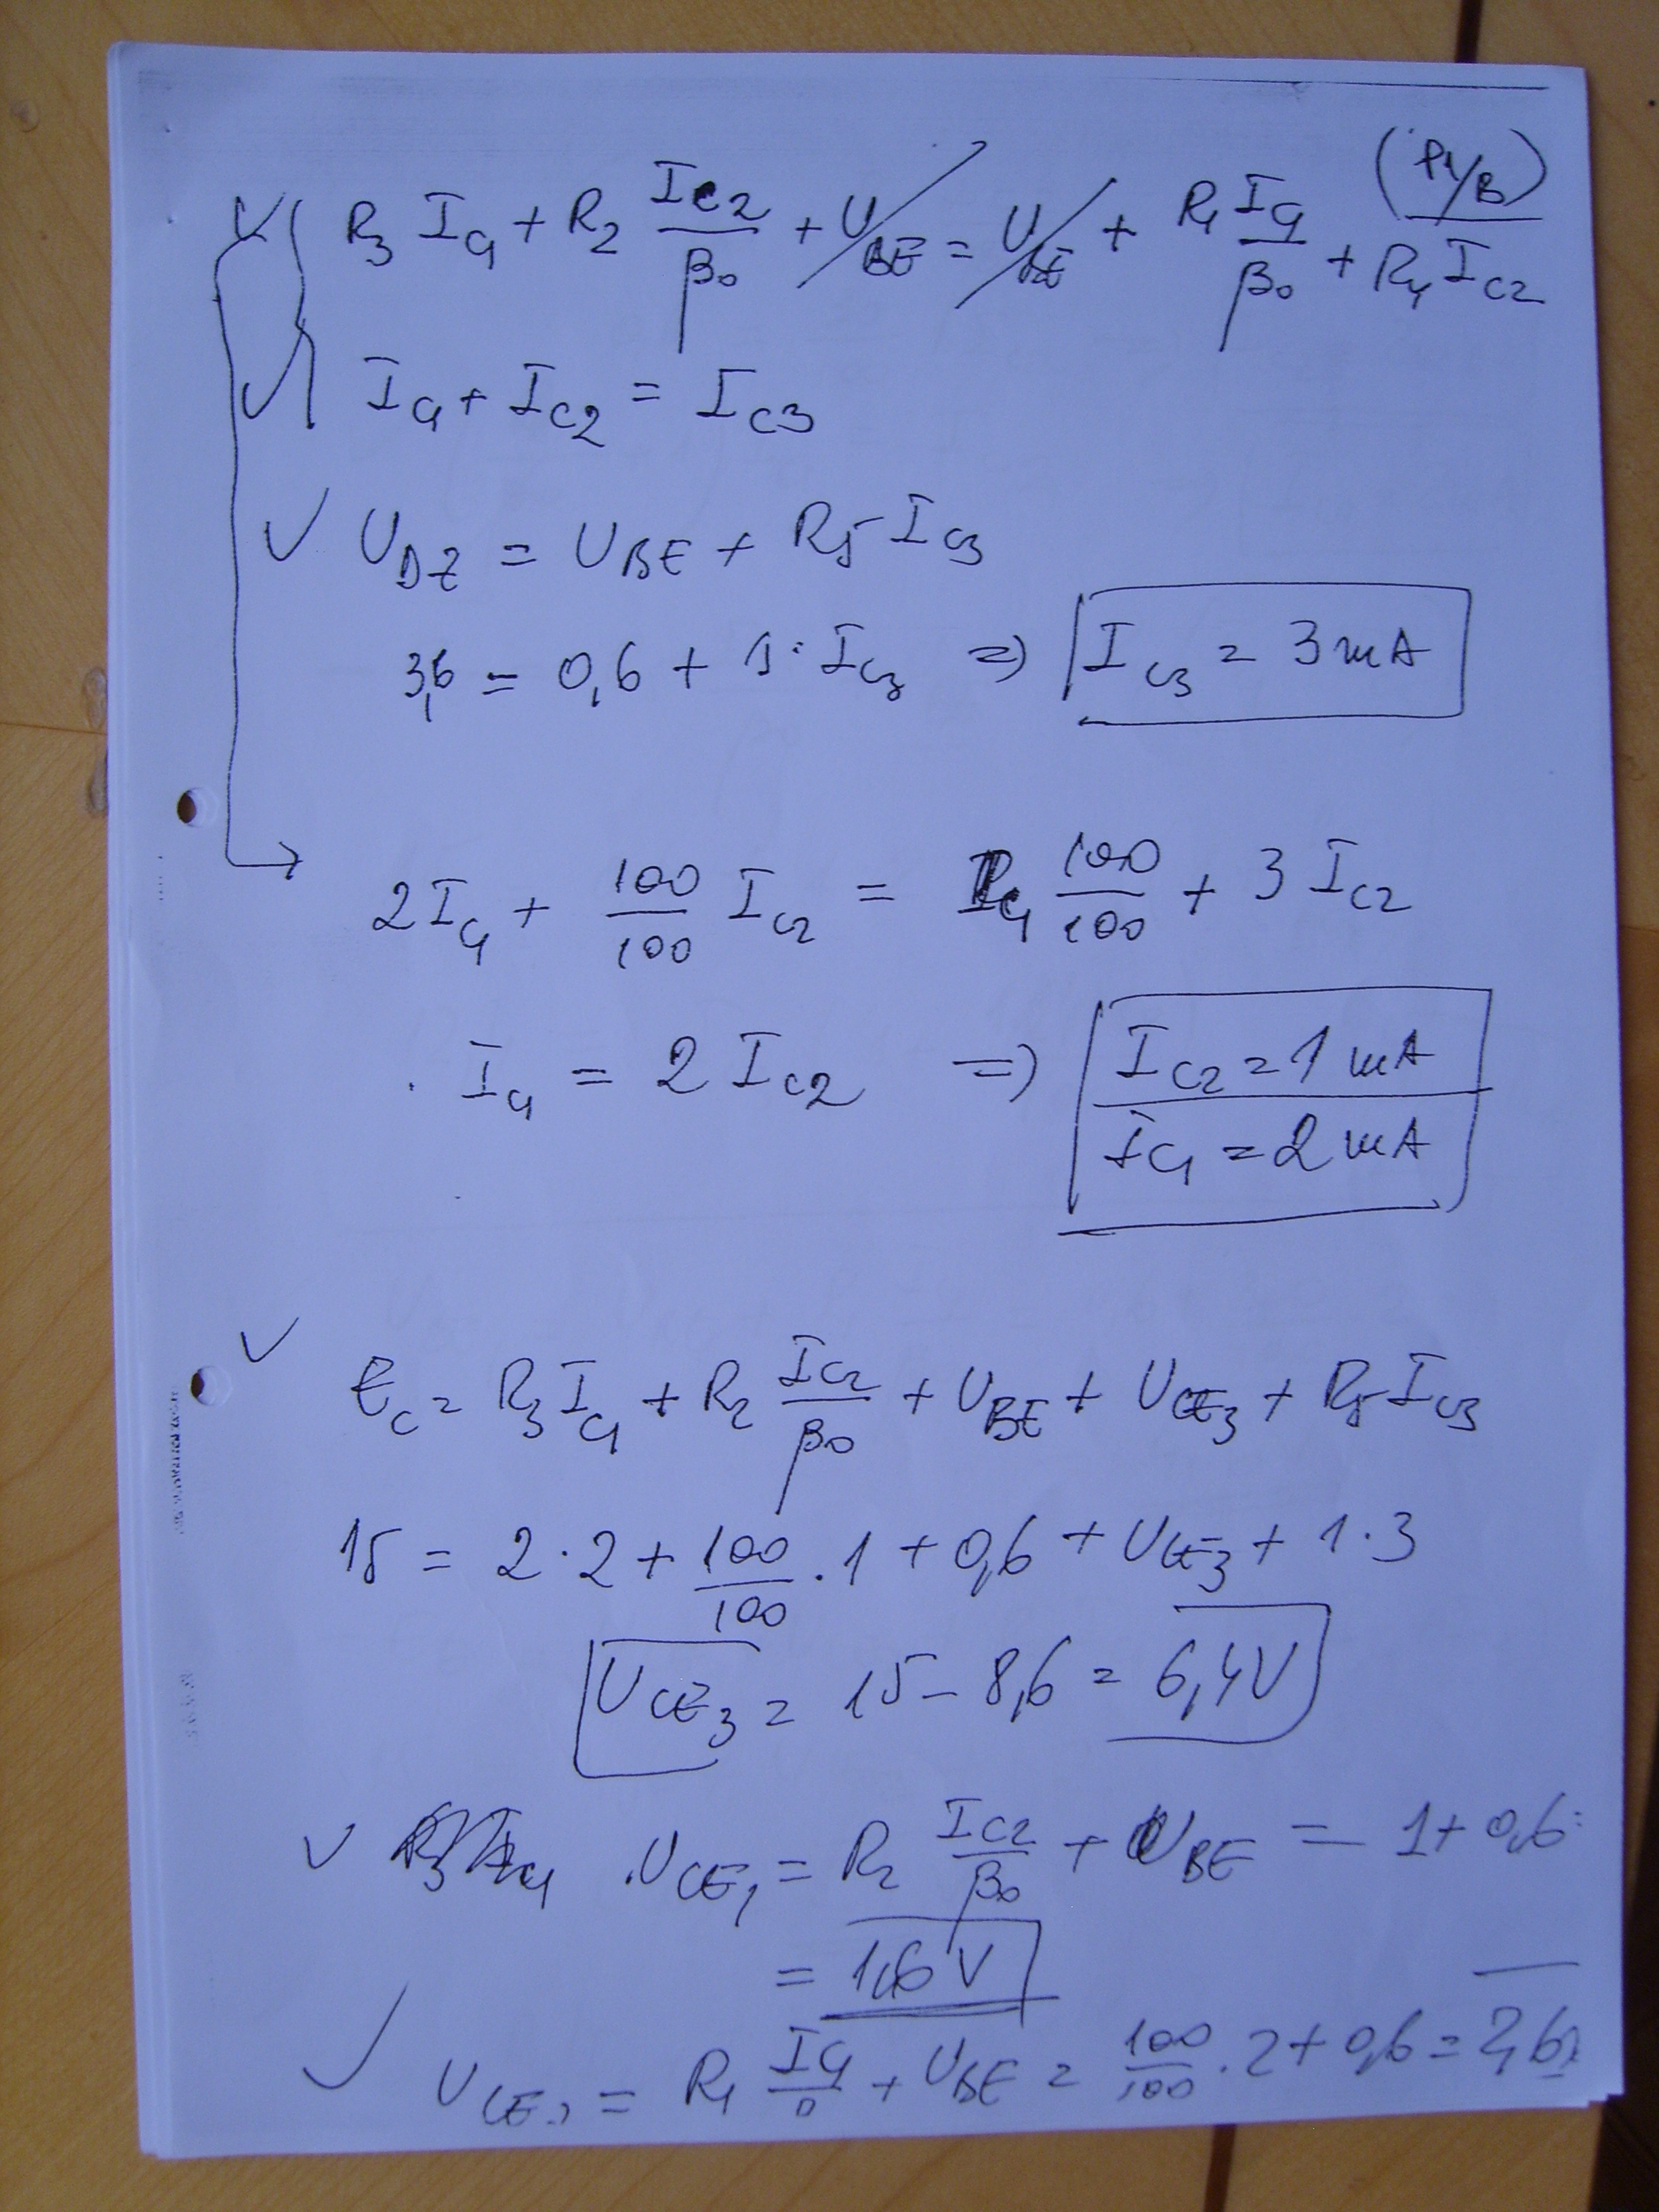 (P1/B)
R3 IC1 + R2 IC2/β0 + UBE = UBE + R1 IC1/β0 + R4 IC2
IC1 + IC2 = IC3
UDZ = UBE + R5 IC3
3,6 = 0,6 + 1·IC3 => IC3 = 3 mA
2IC1 + 100/100 IC2 = IC1 100/100 + 3 IC2
IC1 = 2 IC2 => IC2 = 1 mA
IC1 = 2 mA
EC = R3 IC1 + R2 IC2/β0 + UBE + UCE3 + R5 IC3
15 = 2·2 + 100/100 · 1 + 0,6 + UCE3 + 1·3
UCE3 = 15 - 8,6 = 6,4V
UCE1 = R2 IC2/β0 + UBE = 1 + 0,6 =
= 1,6 V
UCE2 = R1 IC1/β + UBE = 100/100 · 2 + 0,6 = 2,6V